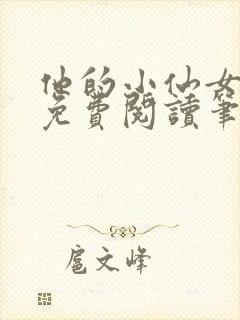 他的小仙女
免費閱讀筆
扈文峰